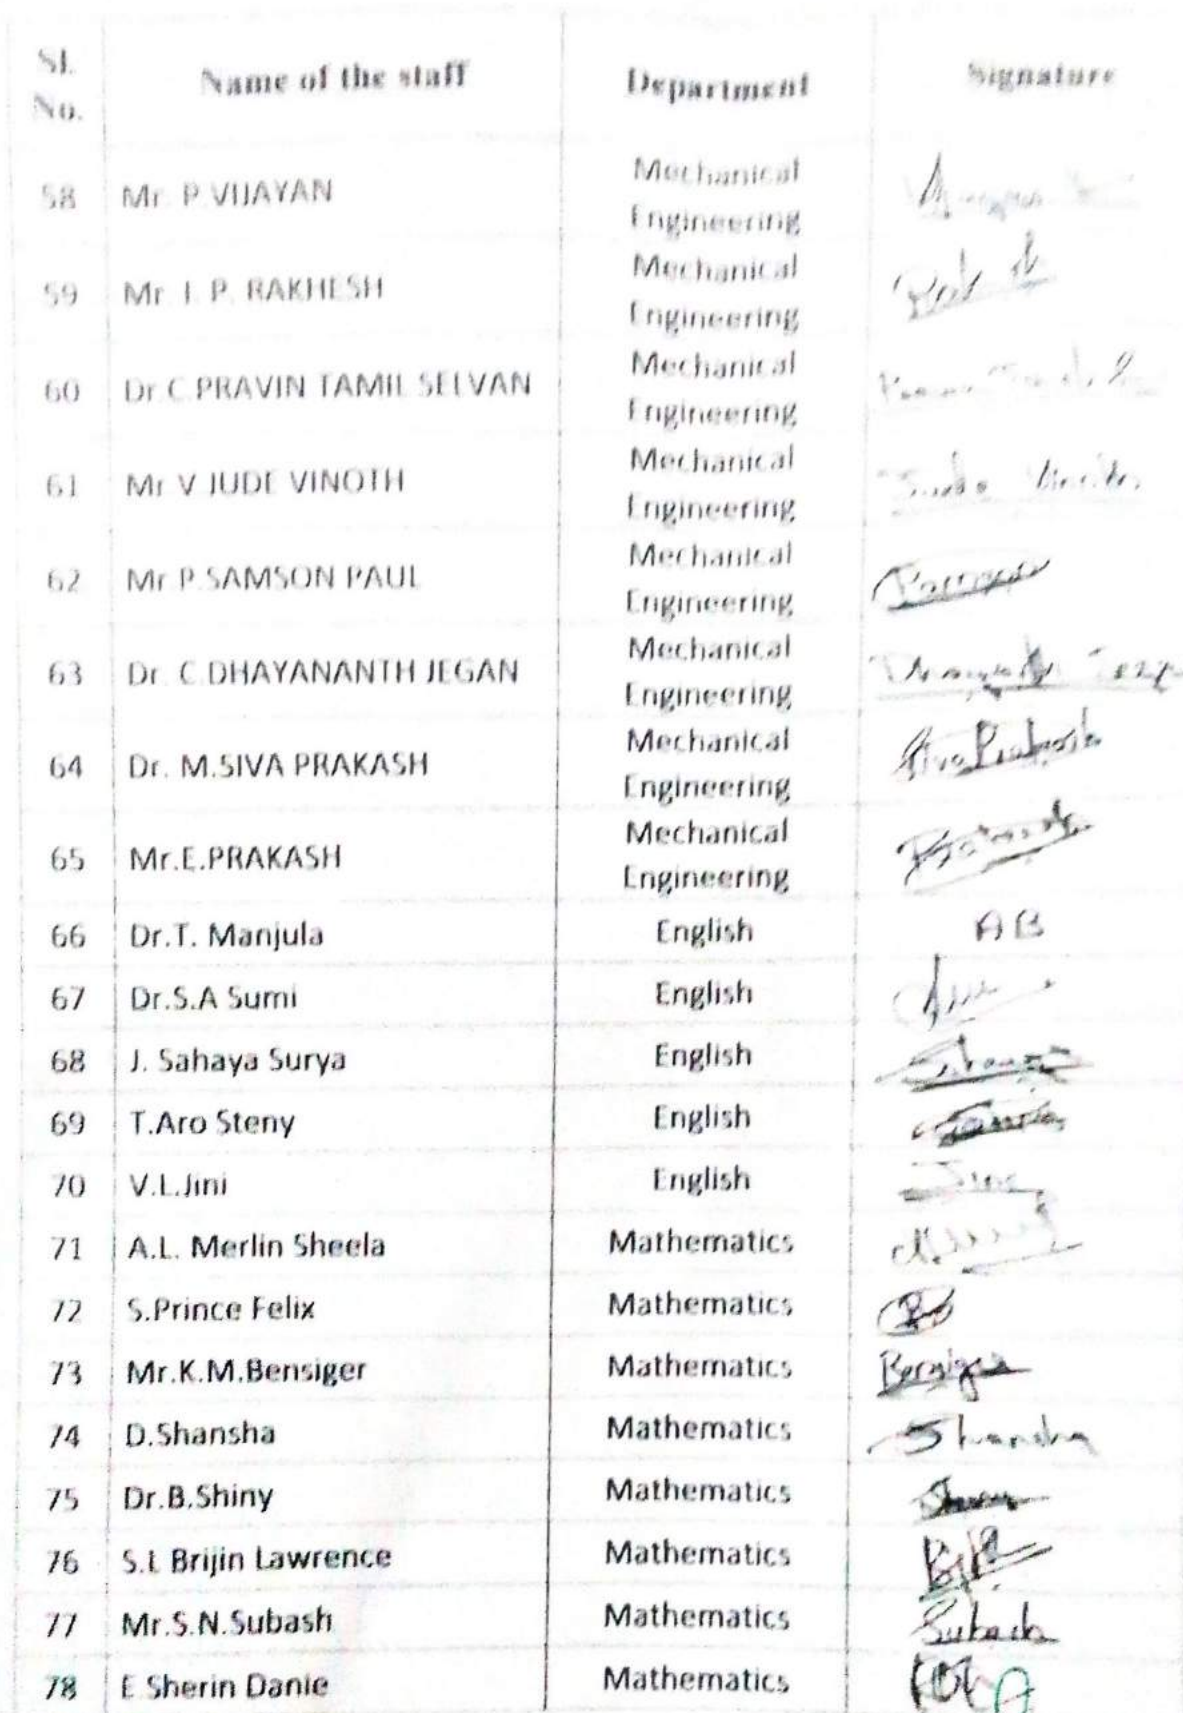 Sl. No. Name of the staff Department Signature
58 Mr. P.VIJAYAN Mechanical Engineering
59 Mr. I. P. RAKHESH Mechanical Engineering
60 Dr.C.PRAVIN TAMIL SELVAN Mechanical Engineering
61 Mr.V JUDE VINOTH Mechanical Engineering
62 Mr.P.SAMSON PAUL Mechanical Engineering
63 Dr. C.DHAYANANTH JEGAN Mechanical Engineering
64 Dr. M.SIVA PRAKASH Mechanical Engineering Siva Prakash
65 Mr.E.PRAKASH Mechanical Engineering
66 Dr.T. Manjula English AB
67 Dr.S.A Sumi English
68 J. Sahaya Surya English
69 T.Aro Steny English
70 V.L.Jini English Jini
71 A.L. Merlin Sheela Mathematics
72 S.Prince Felix Mathematics
73 Mr.K.M.Bensiger Mathematics Bensiger
74 D.Shansha Mathematics Shansha
75 Dr.B.Shiny Mathematics
76 S.L Brijin Lawrence Mathematics
77 Mr.S.N.Subash Mathematics Subash
78 E Sherin Danie Mathematics